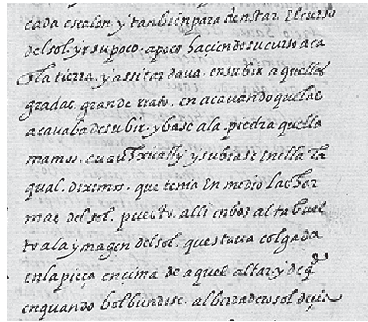 cada escalon. y tambien para denotar. El curso
del sol. y su poco. a poco haciendo su curso aca
la tierra. y assi tardava. en subir aquellas
gradas. grande rato. en acavando que las
acavaba de subir. ybase ala. piedra que lla
mamos. cuauhxicalli y subiase en ella la
qual. diximos. que tenia en medio las her
mas del sol. puesto. alli en boz alta buel
to ala ymagen del sol. questava colgada
en la pieça encima de aquel altar y de q̃
en quando bolbiendose. al berdadero sol decia